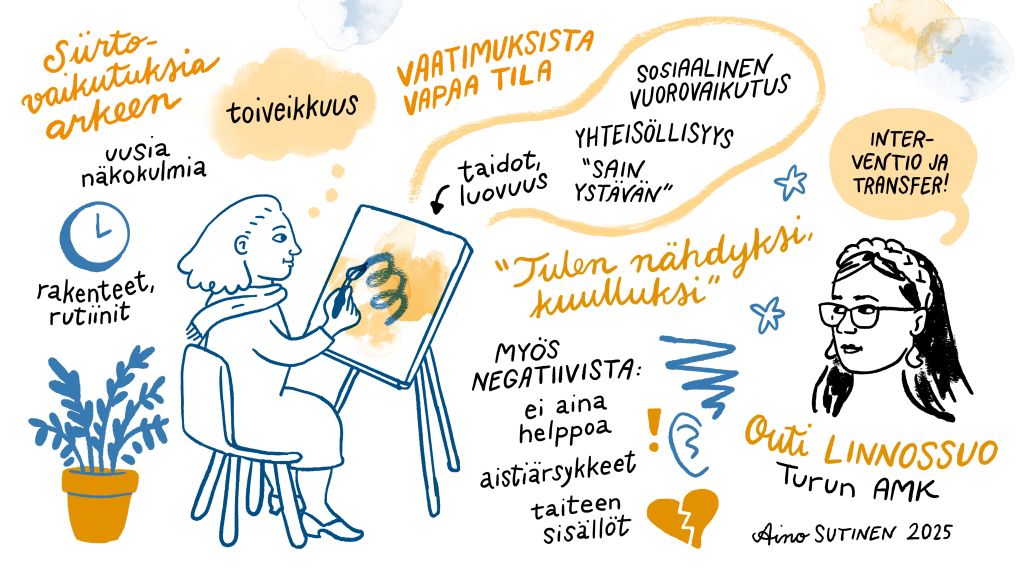 Siirto-
vaikutuksia
arkeen
toiveikkuus
uusia
näkökulmia
rakenteet,
rutiinit
VAATIMUKSISTA
VAPAA TILA
SOSIAALINEN
VUOROVAIKUTUS
YHTEISÖLLISYYS
"SAIN
YSTÄVÄN"
taidot,
luovuus
"Tulen nähdyksi,
kuulluksi"
MYÖS
NEGATIIVISTA:
ei aina
helppoa
!
aistiärsykkeet
taiteen
sisällöt
INTER-
VENTIO JA
TRANSFER!
Outi LINNOSSUO
Turun AMK
Aino SUTINEN 2025